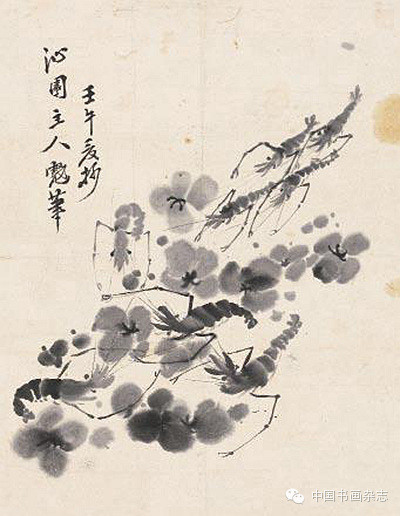 壬午夏杪
沁園主人戲筆
中国书画杂志